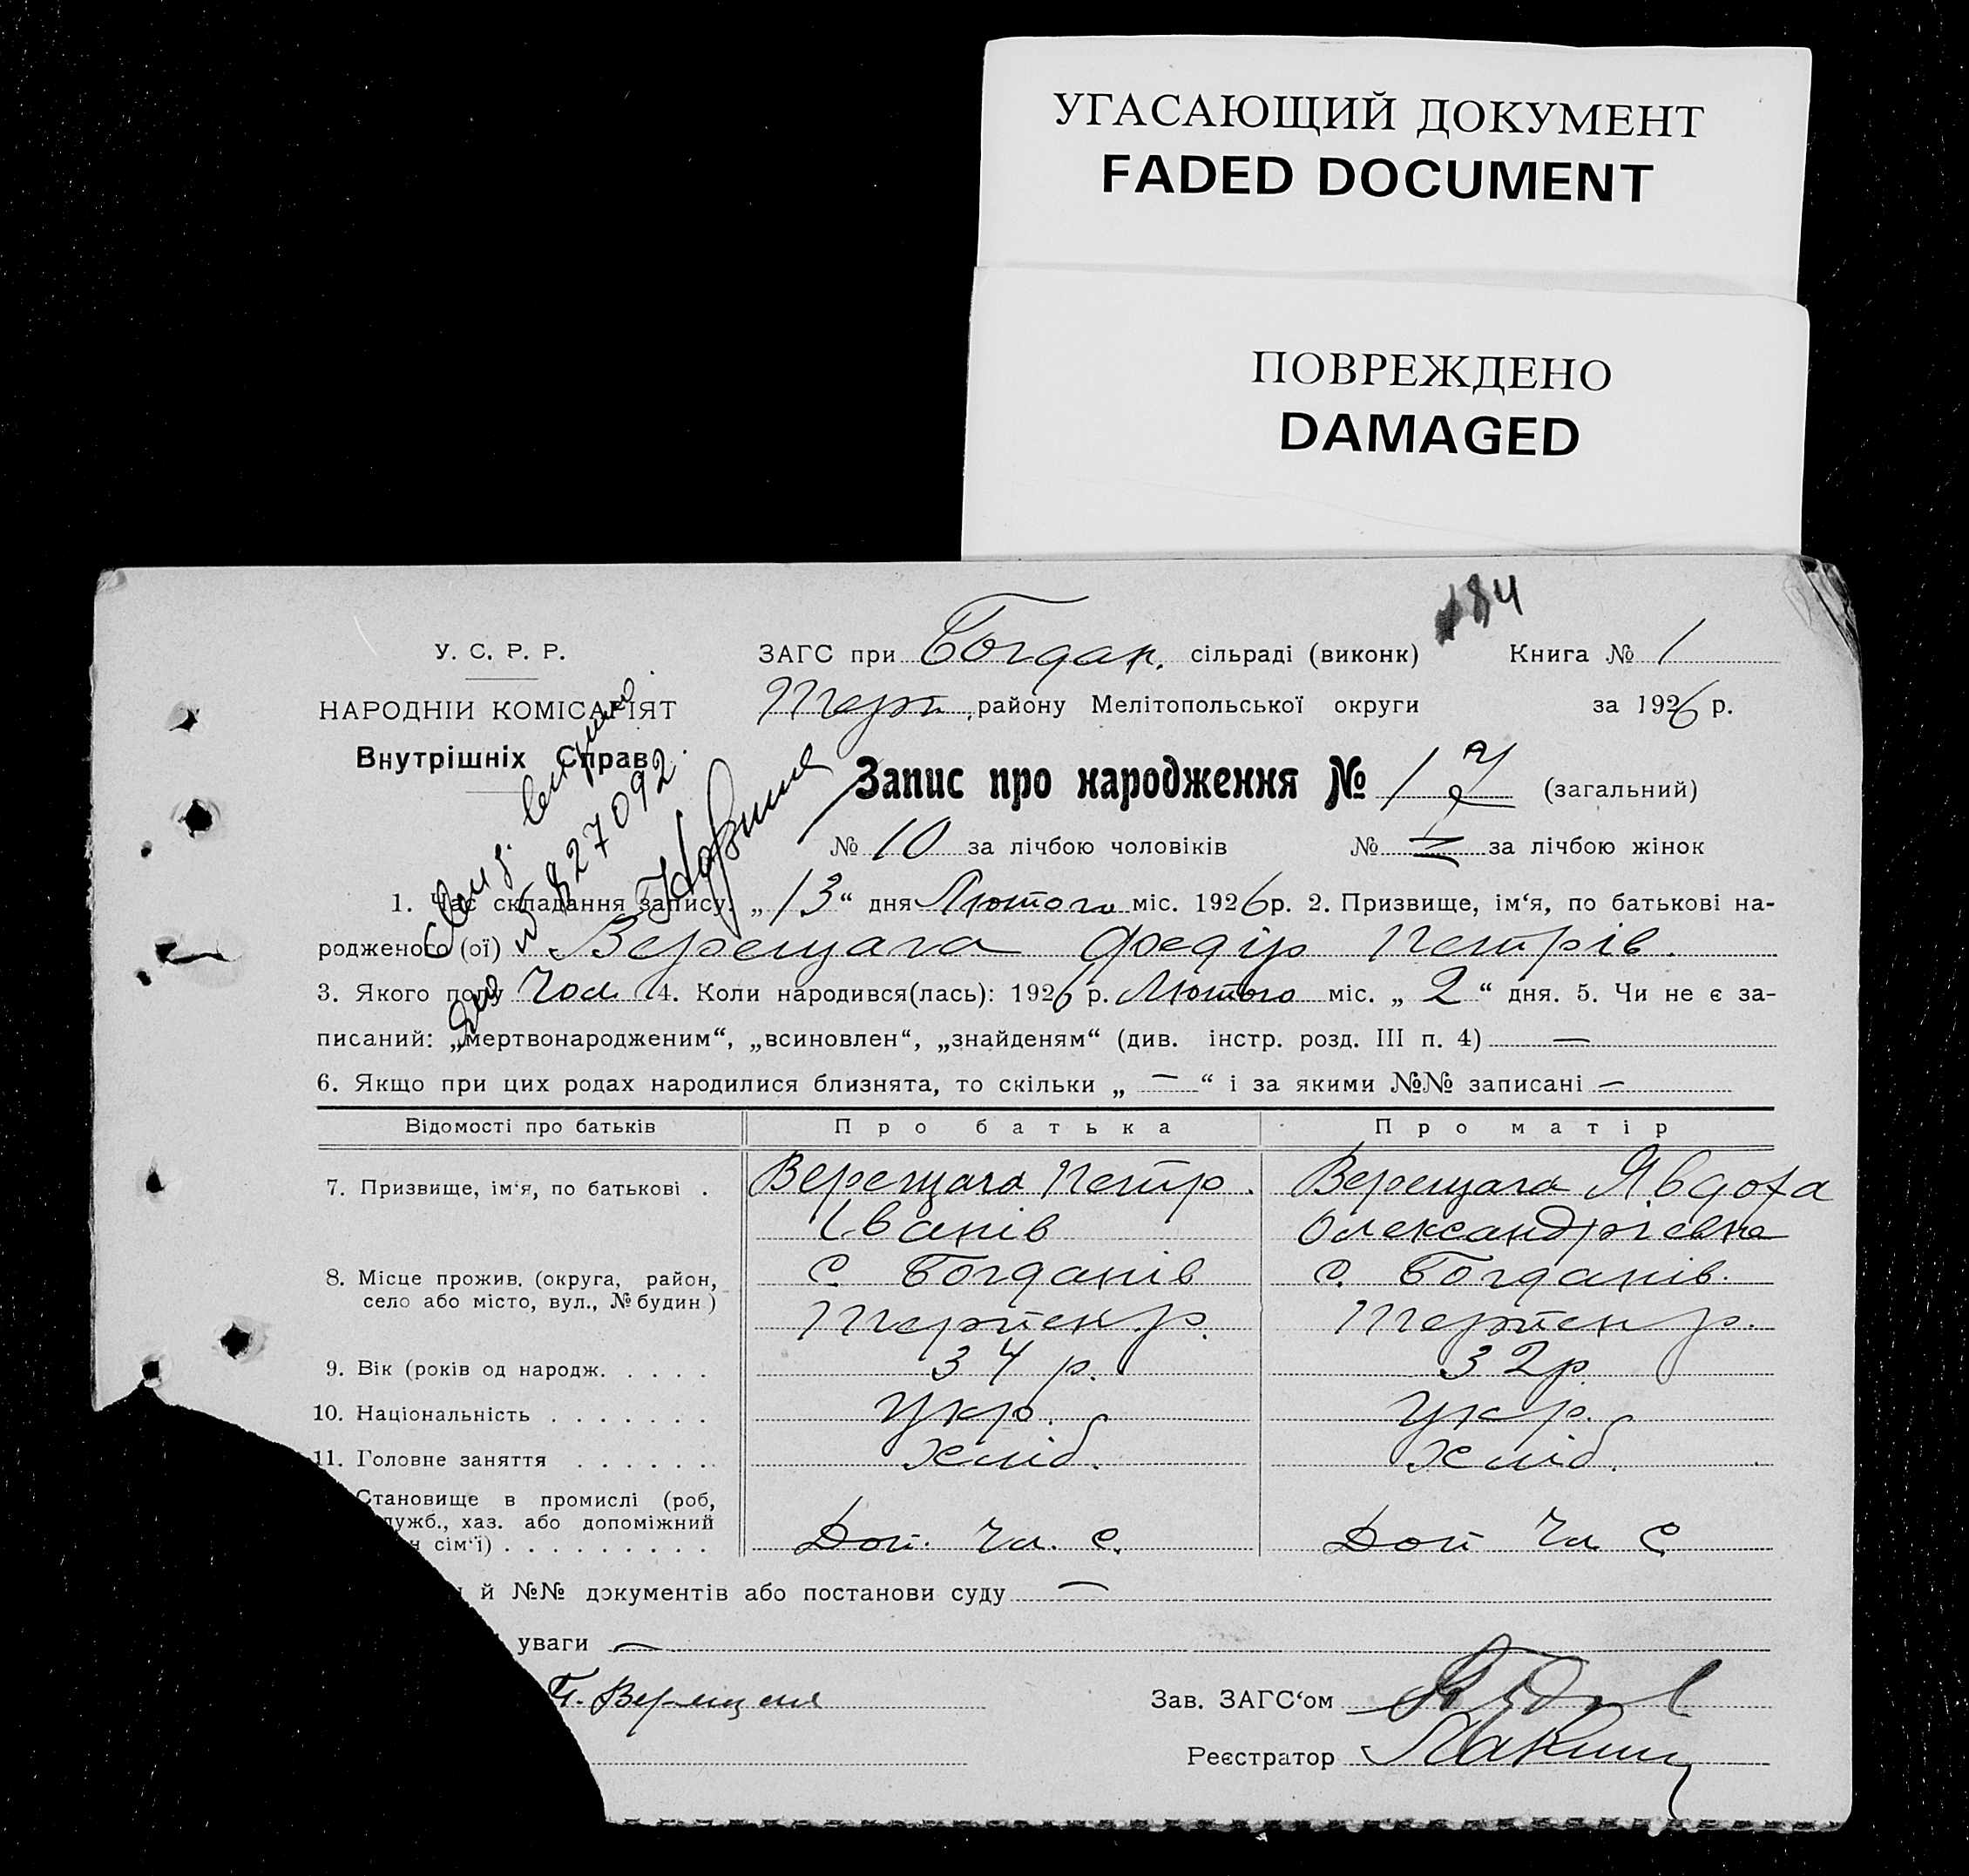 УГАСАЮЩИЙ ДОКУМЕНТ
FADED DOCUMENT
ПОВРЕЖДЕНО
DAMAGED
184
У. С. Р. Р.
НАРОДНІЙ КОМІСАРІЯТ
Внутрішніх Справ
827092
ЗАГС при Богдан. сільраді (виконк) Книга № 1
Терп. району Мелітопольської округи за 1926 р.
Запис про народження № (загальний)
№ 10 за лічбою чоловіків № за лічбою жінок
1. Час складання запису „13“ дня Лютого міс. 1926 р. 2. Призвище, ім‘я, по батькові на-
родженого (ої) Верещага Федір Петрів.
3. Якого полу Чол 4. Коли народився(лась): 1926 р. Лютого міс. „2“ дня. 5. Чи не є за-
писаний: „мертвонародженим“, „всиновлен“, „знайденям“ (див. інстр. розд. III п. 4) —
6. Якщо при цих родах народилися близнята, то скільки „ — “ і за якими №№ записані —
Відомості про батьків Про батька Про матір
7. Призвище, ім‘я, по батькові . Верещага Петр. Верещага Явдоха
Іванів Олександрієвна
8. Місце прожив. (округа, район, с. Богданів с. Богданів.
село або місто, вул., № будин) Терпен. р. Терпен р.
9. Вік (років од народж. . . . . 34 р. 32 р
10. Національність . . . . . . . Укр. Укр.
11. Головне заняття . . . . . . Хліб. Хліб.
Становище в промислі (роб,
служб., хаз. або допоміжний
сім‘ї) . . . . . . . . . Доп. чл. с. Доп чл с
й №№ документів або постанови суду —
уваги —
П. Верещага Зав. ЗАГС‘ом
Реєстратор